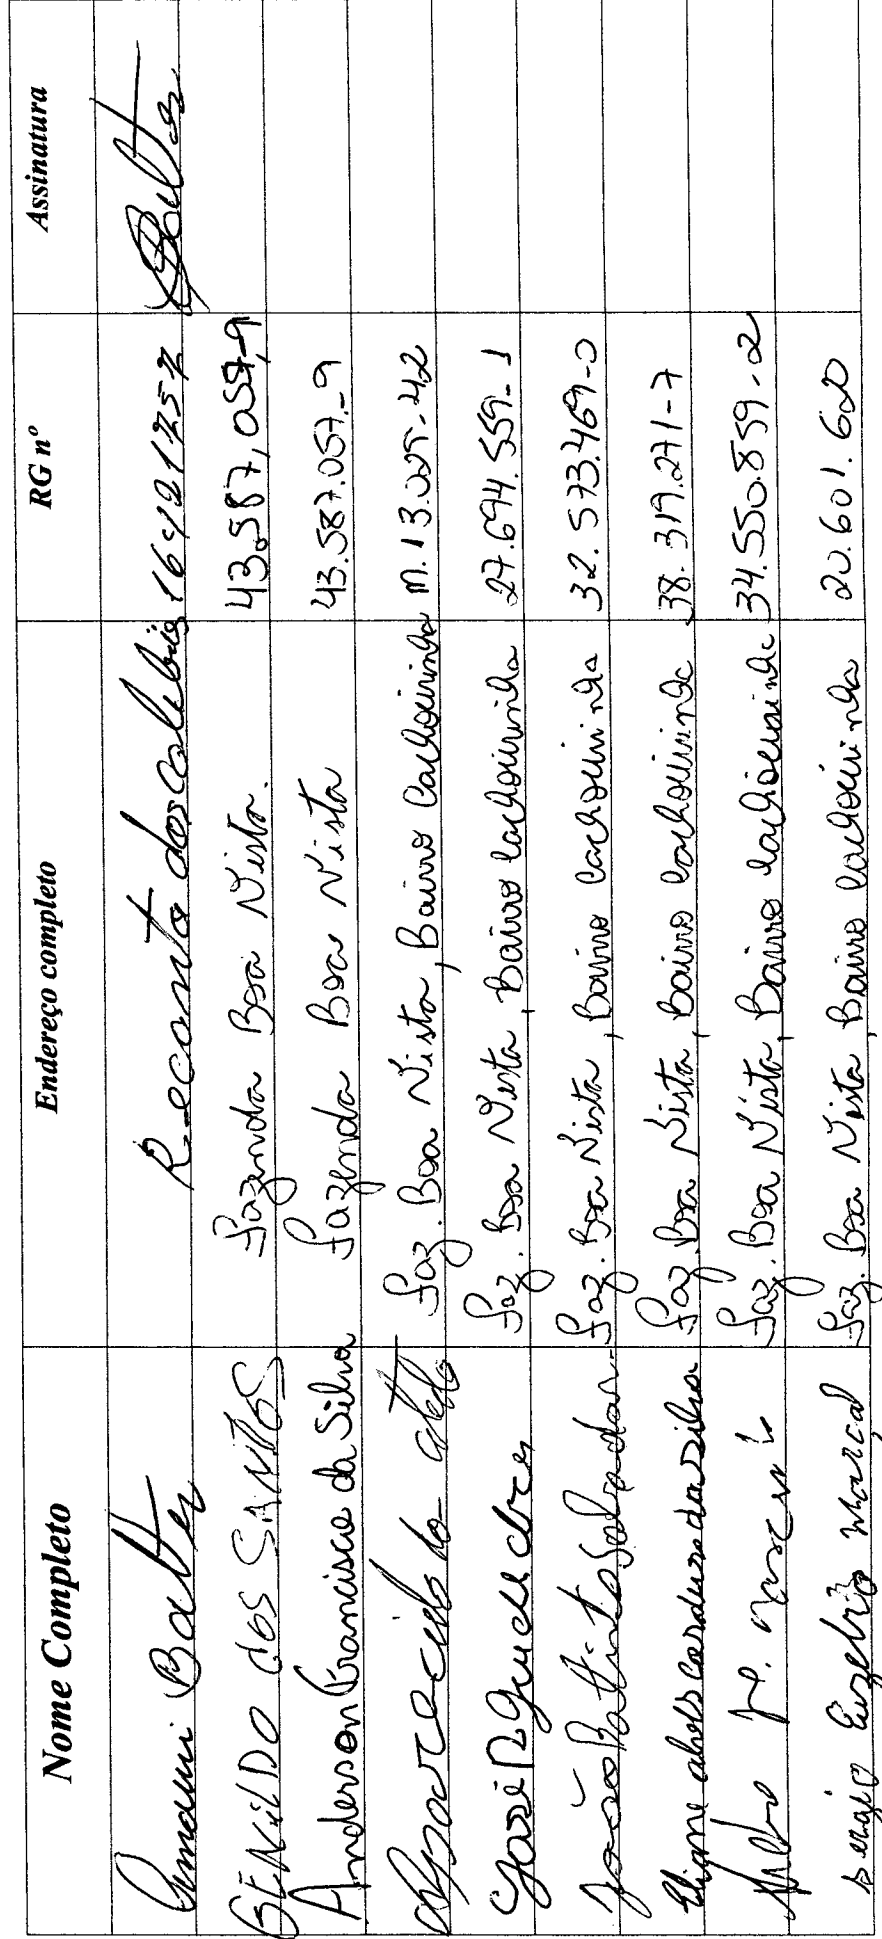 Nome Completo Endereço completo RG nº Assinatura
Recanto dos
GENILDO dos SANTOS Fazenda Boa Vista. 43.587,057,-9
Anderson Francisco da Silva Fazenda Boa Vista 43.587.057.-9
Aparecido Faz. Boa Vista, Bairro Cachoeirinha M.13.025-42
José R Faz. Boa Vista, Bairro Cachoeirinha 27.694.559-1
João Batista Faz. Boa Vista, Bairro Cachoeirinha 32.573.469-0
Eliane alves cardoso da silva Faz. Boa Vista, Bairro Cachoeirinha 38.319.271-7
Faz. Boa Vista, Bairro Cachoeirinha 34.550.859-2
Sergio marcal Faz. Boa Vista, Bairro Cachoeirinha 20.601.620